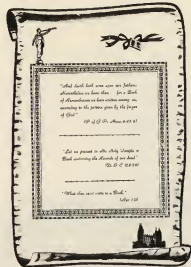 "And death hath come upon our fathers;
Nevertheless we know them for a Book
of Remembrance we have written among us,
according to the pattern given by the finger
of God"
(P. of G. P., Moses 6:45-46)
"Let us present in His Holy Temple a
Book containing the Records of our dead"
(D. & C. 128:24)
"What thou seest write in a Book,"